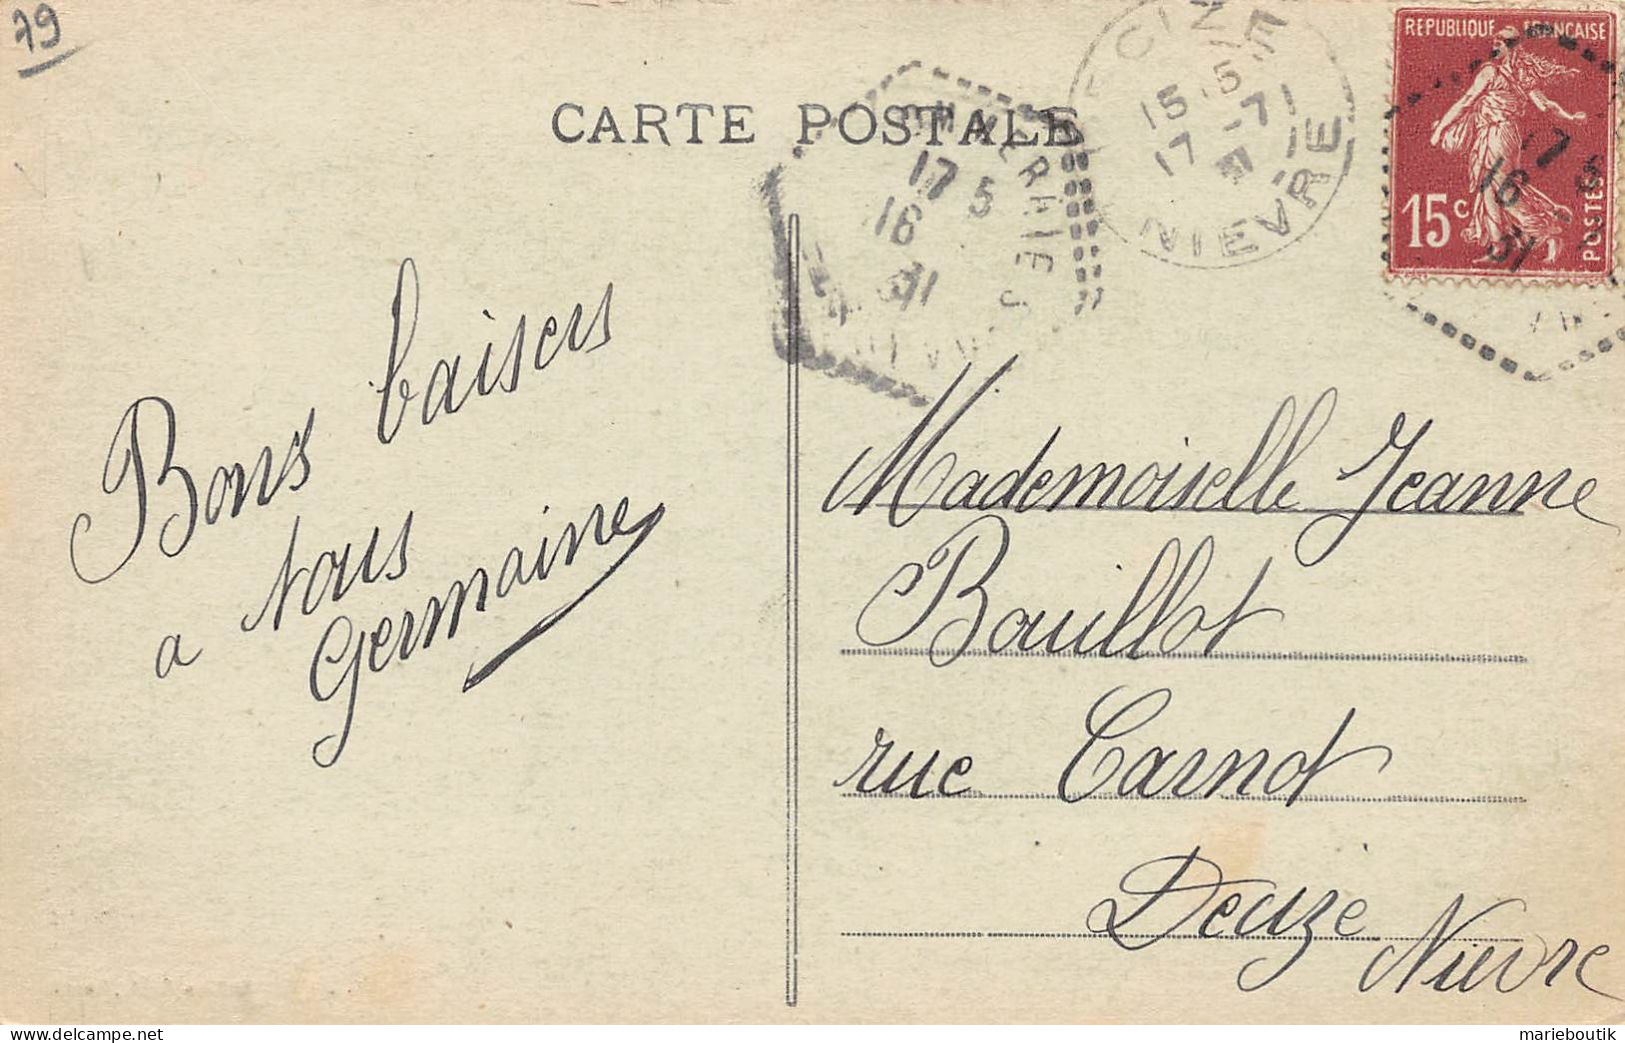 79
CARTE POSTALE
DECIZE
15 15
17 -7
31
NIEVRE
17 5
16
31
REPUBLIQUE FRANCAISE
15c
POSTES
17 5
16
31
Bons baisers
a tous
Germaine
Mademoiselle Jeanne
Bouillot
rue Carnot
Decize
Nievre
delcampe.net
marieboutik